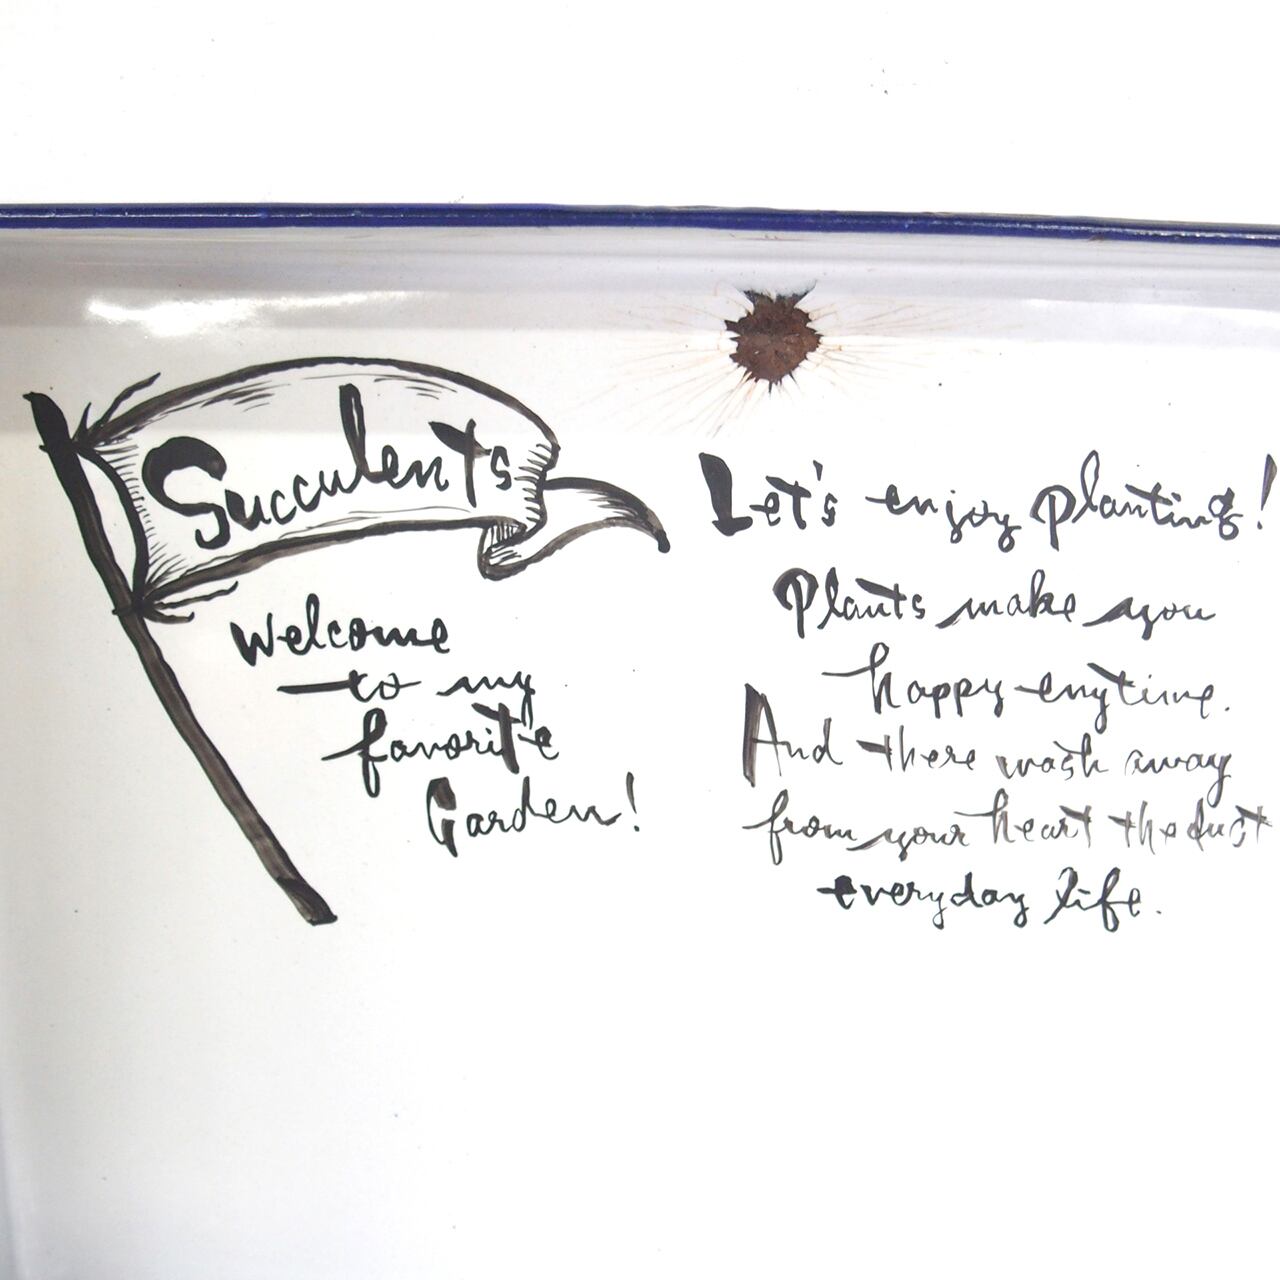 Succulents
Welcome
to my
favorite
Garden!
Let's enjoy planting!
Plants make you
happy enytime.
And there wash away
from your heart the dust
everyday life.